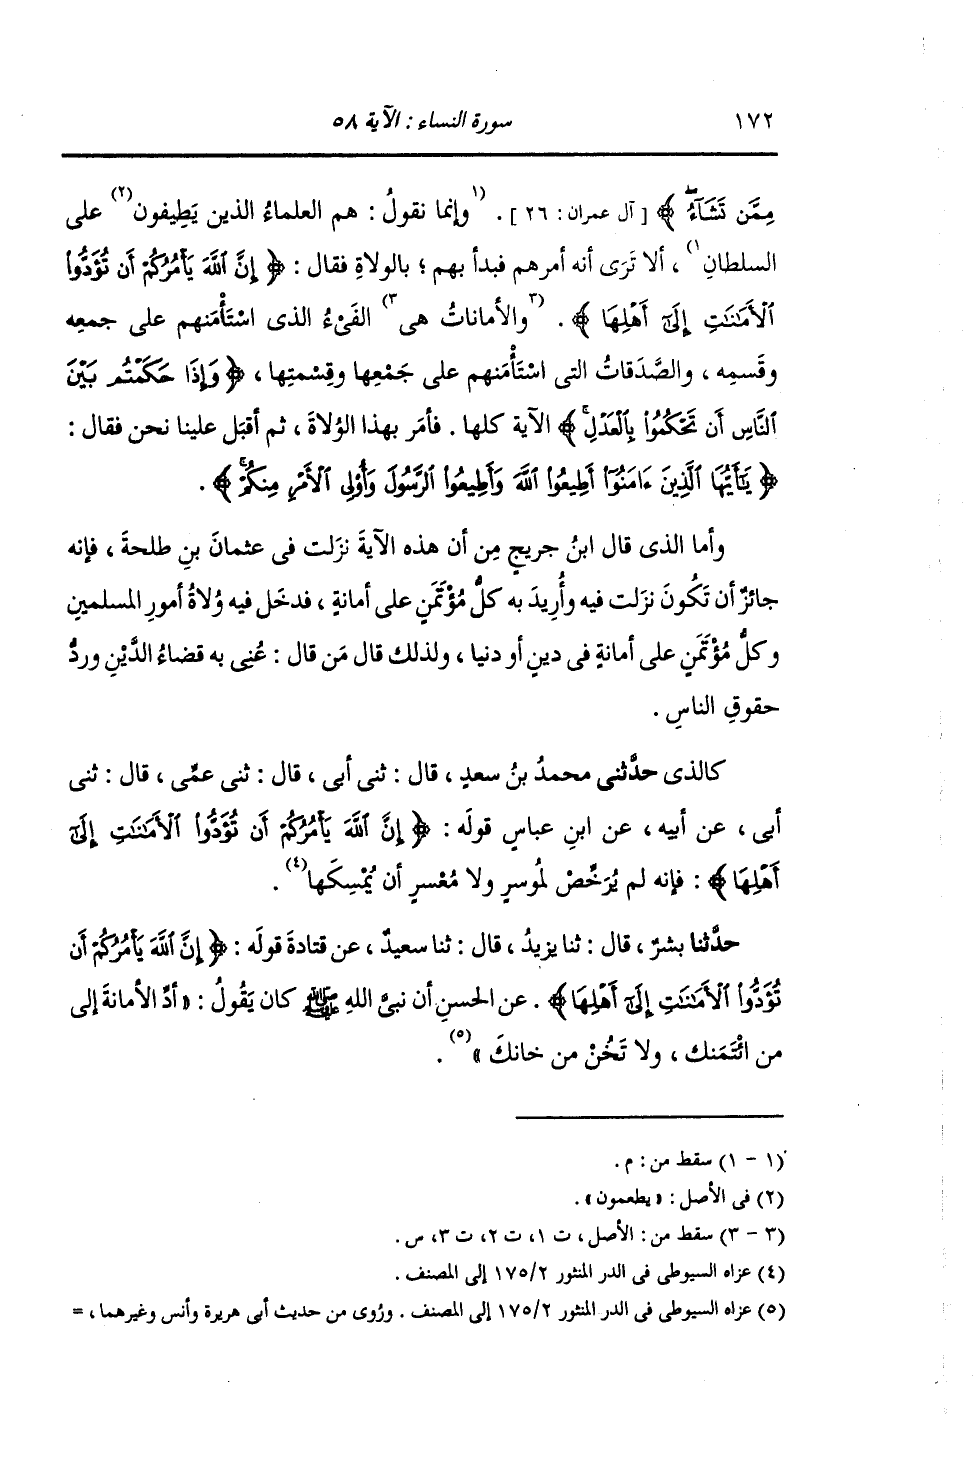 ١٧٢ سورة النساء : الآية ٥٨
مِمَّن تَشَآءُ ﴾ [ آل عمران : ٢٦ ] . (١ وإنما نقولُ : هم العلماءُ الذين يَطِيفون(٢) على
السلطانِ ١) ، ألا تَرَى أنه أمرهم فبدأ بهم ؛ بالولاةِ فقال : ﴿ إِنَّ ٱللَّهَ يَأْمُرُكُمْ أَن تُؤَدُّوا۟
ٱلْأَمَـٰنَـٰتِ إِلَىٰٓ أَهْلِهَا ﴾ . (٣ والأماناتُ هى ٣) الفَىْءُ الذى اسْتَأْمَنهم على جمعِه
وقَسمِه ، والصَّدَقاتُ التى اسْتَأْمَنهم على جَمْعِها وقِسْمتِها ، ﴿ وَإِذَا حَكَمْتُم بَيْنَ
ٱلنَّاسِ أَن تَحْكُمُوا۟ بِٱلْعَدْلِ ۚ ﴾ الآية كلها . فأمَر بهذا الوُلاةَ ، ثم أقبَل علينا نحن فقال :
﴿ يَـٰٓأَيُّهَا ٱلَّذِينَ ءَامَنُوٓا۟ أَطِيعُوا۟ ٱللَّهَ وَأَطِيعُوا۟ ٱلرَّسُولَ وَأُو۟لِى ٱلْأَمْرِ مِنكُمْ ۖ ﴾ .
وأما الذى قال ابنُ جريجٍ مِن أن هذه الآيةَ نزَلت فى عثمانَ بنِ طلحةَ ، فإنه
جائزٌ أن تَكُونَ نزَلت فيه وأُرِيدَ به كلُّ مُؤْتَمَنٍ على أمانةٍ ، فدخَل فيه وُلاةُ أمورِ المسلمينِ
وكلُّ مُؤْتَمَنٍ على أمانةٍ فى دينٍ أو دنيا ، ولذلك قال مَن قال : عُنِى به قضاءُ الدَّيْنِ وردُّ
حقوقِ الناسِ .
كالذى حدَّثنى محمدُ بنُ سعدٍ ، قال : ثنى أبى ، قال : ثنى عمِّى ، قال : ثنى
أبى ، عن أبيه ، عن ابنِ عباسٍ قولَه : ﴿ إِنَّ ٱللَّهَ يَأْمُرُكُمْ أَن تُؤَدُّوا۟ ٱلْأَمَـٰنَـٰتِ إِلَىٰٓ
أَهْلِهَا ﴾ : فإنه لم يُرَخِّصْ لمُوسرٍ ولا مُعْسرٍ أن يُمْسِكَها(٤) .
حدَّثنا بشرٌ ، قال : ثنا يزيدُ ، قال : ثنا سعيدٌ ، عن قتادةَ قولَه : ﴿ إِنَّ ٱللَّهَ يَأْمُرُكُمْ أَن
تُؤَدُّوا۟ ٱلْأَمَـٰنَـٰتِ إِلَىٰٓ أَهْلِهَا ﴾ . عن الحسنِ أن نبىَّ اللهِ ﷺ كان يَقُولُ : « أدِّ الأمانةَ إلى
من ائْتَمَنك ، ولا تَخُنْ من خانكَ »(٥) .
(١ - ١) سقط من : م .
(٢) فى الأصل : « يطعمون » .
(٣ - ٣) سقط من : الأصل ، ت ١، ت ٢، ت ٣، س .
(٤) عزاه السيوطى فى الدر المنثور ١٧٥/٢ إلى المصنف .
(٥) عزاه السيوطى فى الدر المنثور ١٧٥/٢ إلى المصنف . ورُوى من حديث أبى هريرة وأنس وغيرهما ، =